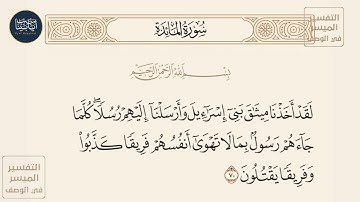 سُورَةُ المَائِدَةِ
التفسير
الميسر
في الوصف
بِسْمِ اللَّهِ الرَّحْمَٰنِ الرَّحِيمِ
لَقَدْ أَخَذْنَا مِيثَٰقَ بَنِىٓ إِسْرَٰٓءِيلَ وَأَرْسَلْنَآ إِلَيْهِمْ رُسُلًا ۖ كُلَّمَا
جَآءَهُمْ رَسُولٌۢ بِمَا لَا تَهْوَىٰٓ أَنفُسُهُمْ فَرِيقًا كَذَّبُوا۟
وَفَرِيقًا يَقْتُلُونَ ٧٠
التفسير
الميسر
في الوصف